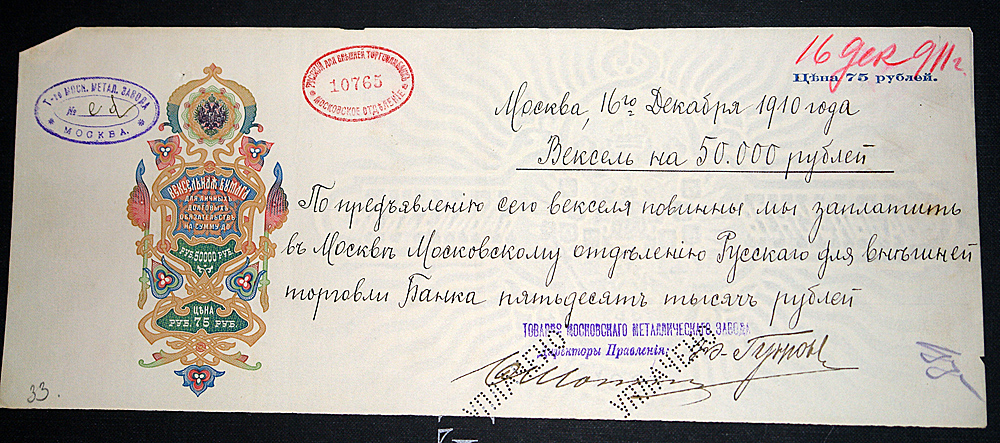 16 дек 911 г.
Цѣна 75 рублей.
Т-ва МОСК. МЕТАЛ. ЗАВОДА
№
МОСКВА.
РУССКІЙ ДЛЯ ВНѢШНЕЙ ТОРГОВЛИ БАНКЪ
10765
МОСКОВСКОЕ ОТДѢЛЕНІЕ
Москва, 16го Декабря 1910 года
Вексель на 50.000 рублей
ВЕКСЕЛЬНАЯ БУМАГА
ДЛЯ ЛИЧНЫХЪ
ДОЛГОВЫХЪ
ОБЯЗАТЕЛЬСТВЪ
НА СУММУ ДО
РУБ. 50000 РУБ.
ЦѢНА
РУБ. 75 РУБ.
По предъявленію сего векселя повинны мы заплатить
въ Москвѣ Московскому отдѣленію Русскаго для внѣшней
торговли Банка пятьдесятъ тысячъ рублей
ТОВАР. МОСКОВСКАГО МЕТАЛЛИЧЕСКАГО ЗАВОДА
Директоры Правленія:
УПЛАЧЕНО
УПЛАЧЕНО
33.